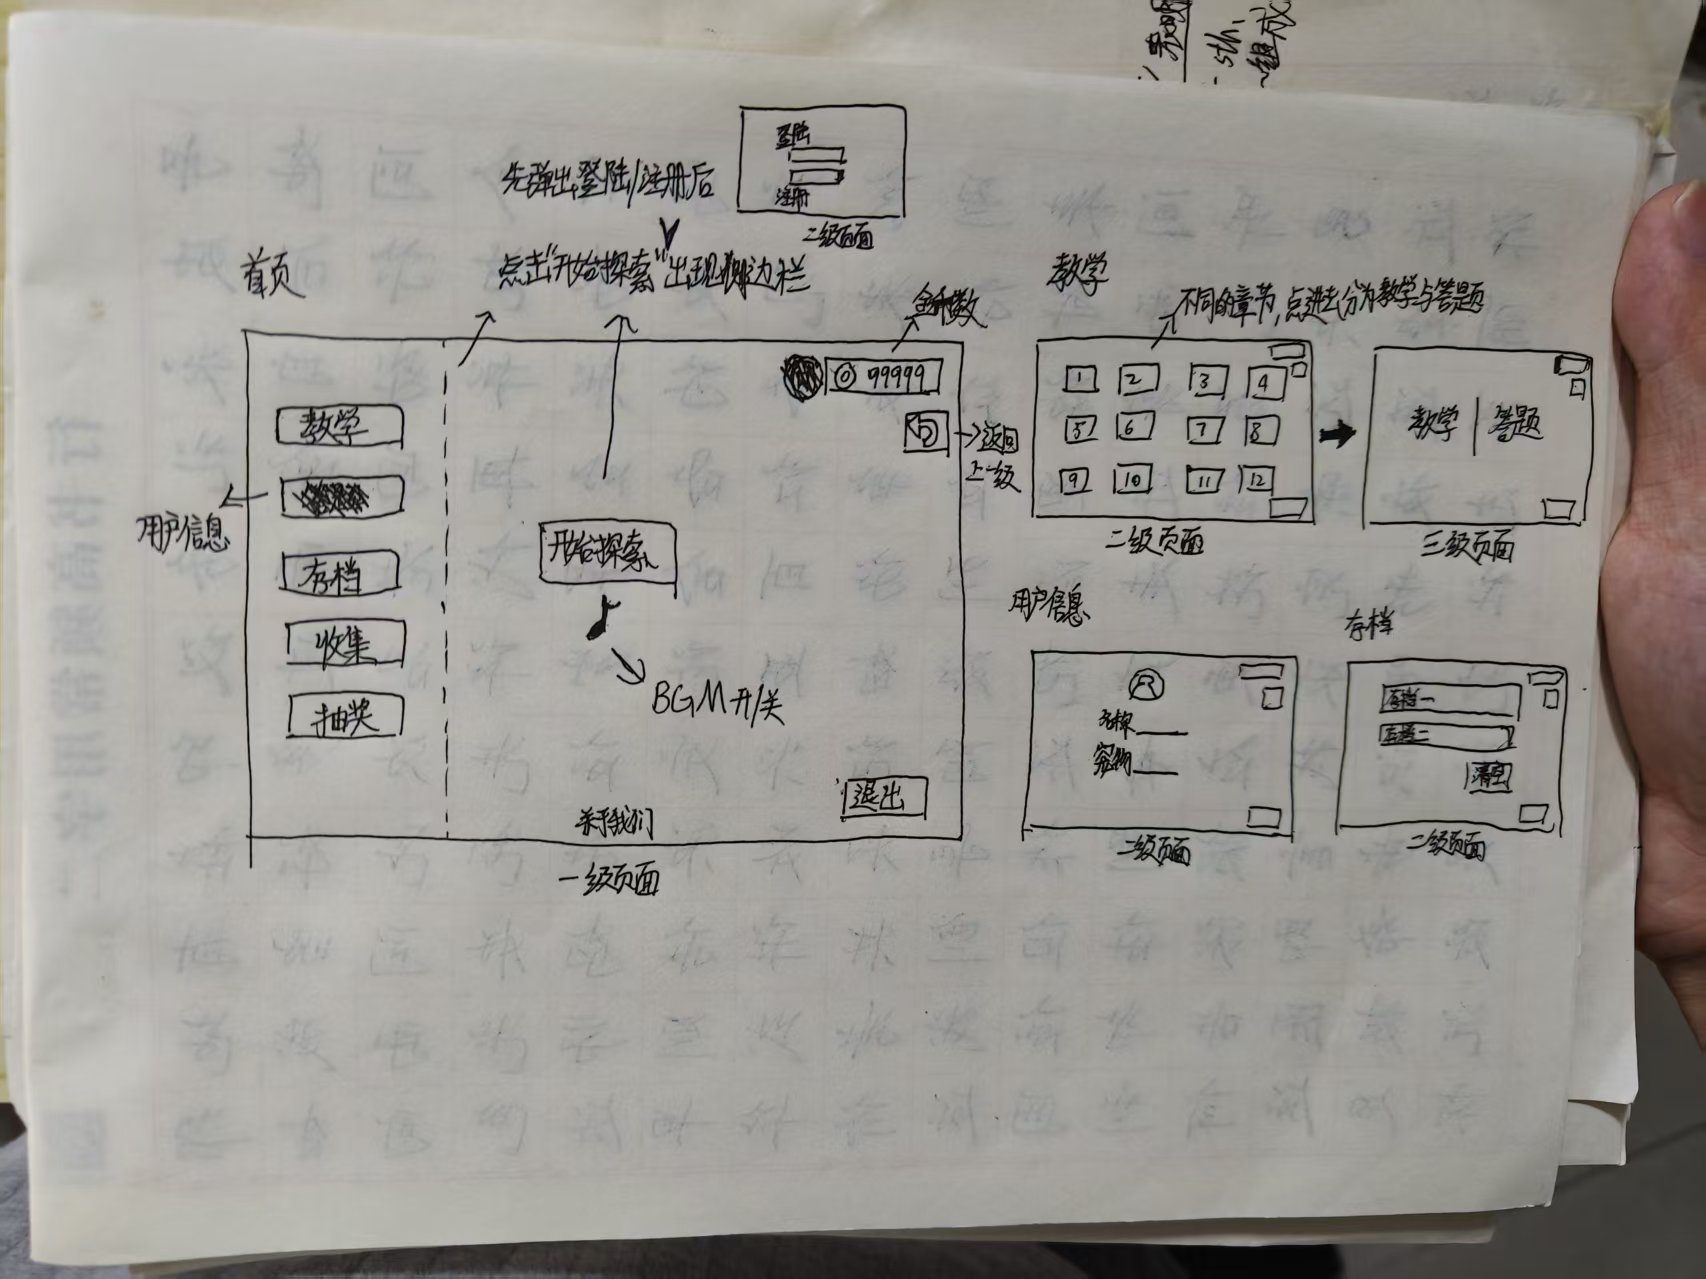 表明
sth,
组成
登陆
注册
二级页面
先弹出登陆/注册后
点击"开始探索"出现侧边栏
首页
99999
返回
上一级
教学
用户信息
存档
收集
抽奖
开始探索
BGM开/关
退出
关于我们
一级页面
教学
不同的章节,点进去分为教学与答题
1 2 3 4
5 6 7 8
9 10 11 12
二级页面
教学 答题
三级页面
用户信息
宠物
二级页面
存档
存档一
存档二
清空
二级页面